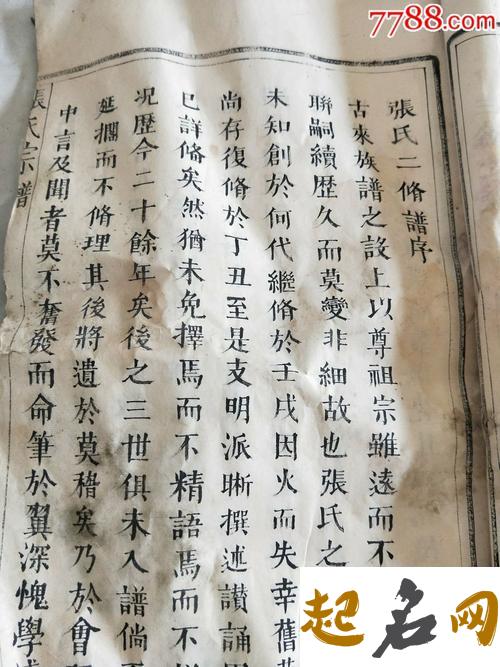 7788.com
張氏二脩譜序
古來族譜之設上以尊祖宗雖遠而不
聯嗣續歷久而莫變非細故也張氏之
未知創於何代繼脩於壬戌因火而失幸舊
尚存復脩於丁丑至是支明派晰撰述讃誦
已詳脩矣然猶未免擇焉而不精語焉而不
况歴今二十餘年矣後之三世俱未入譜倘
延擱而不脩理其後將遺於莫稽矣乃於會
中言及聞者莫不奮發而命筆於翼深愧學
張氏宗譜
起名网